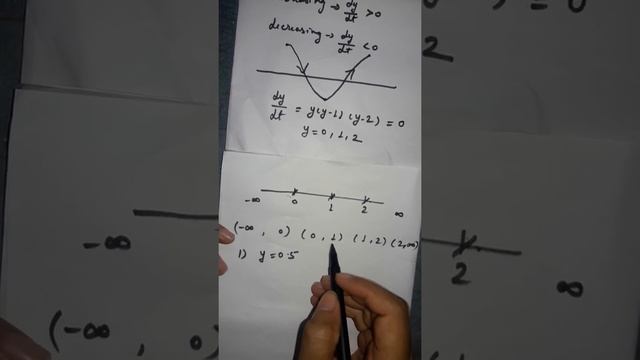 → dy/dt > 0
decreasing → dy/dt < 0
dy/dt = y(y-1) (y-2) = 0
y = 0, 1, 2
-∞ 0 1 2 ∞
(-∞, 0) (0, 1) (1, 2) (2, ∞)
1) y = 0.5